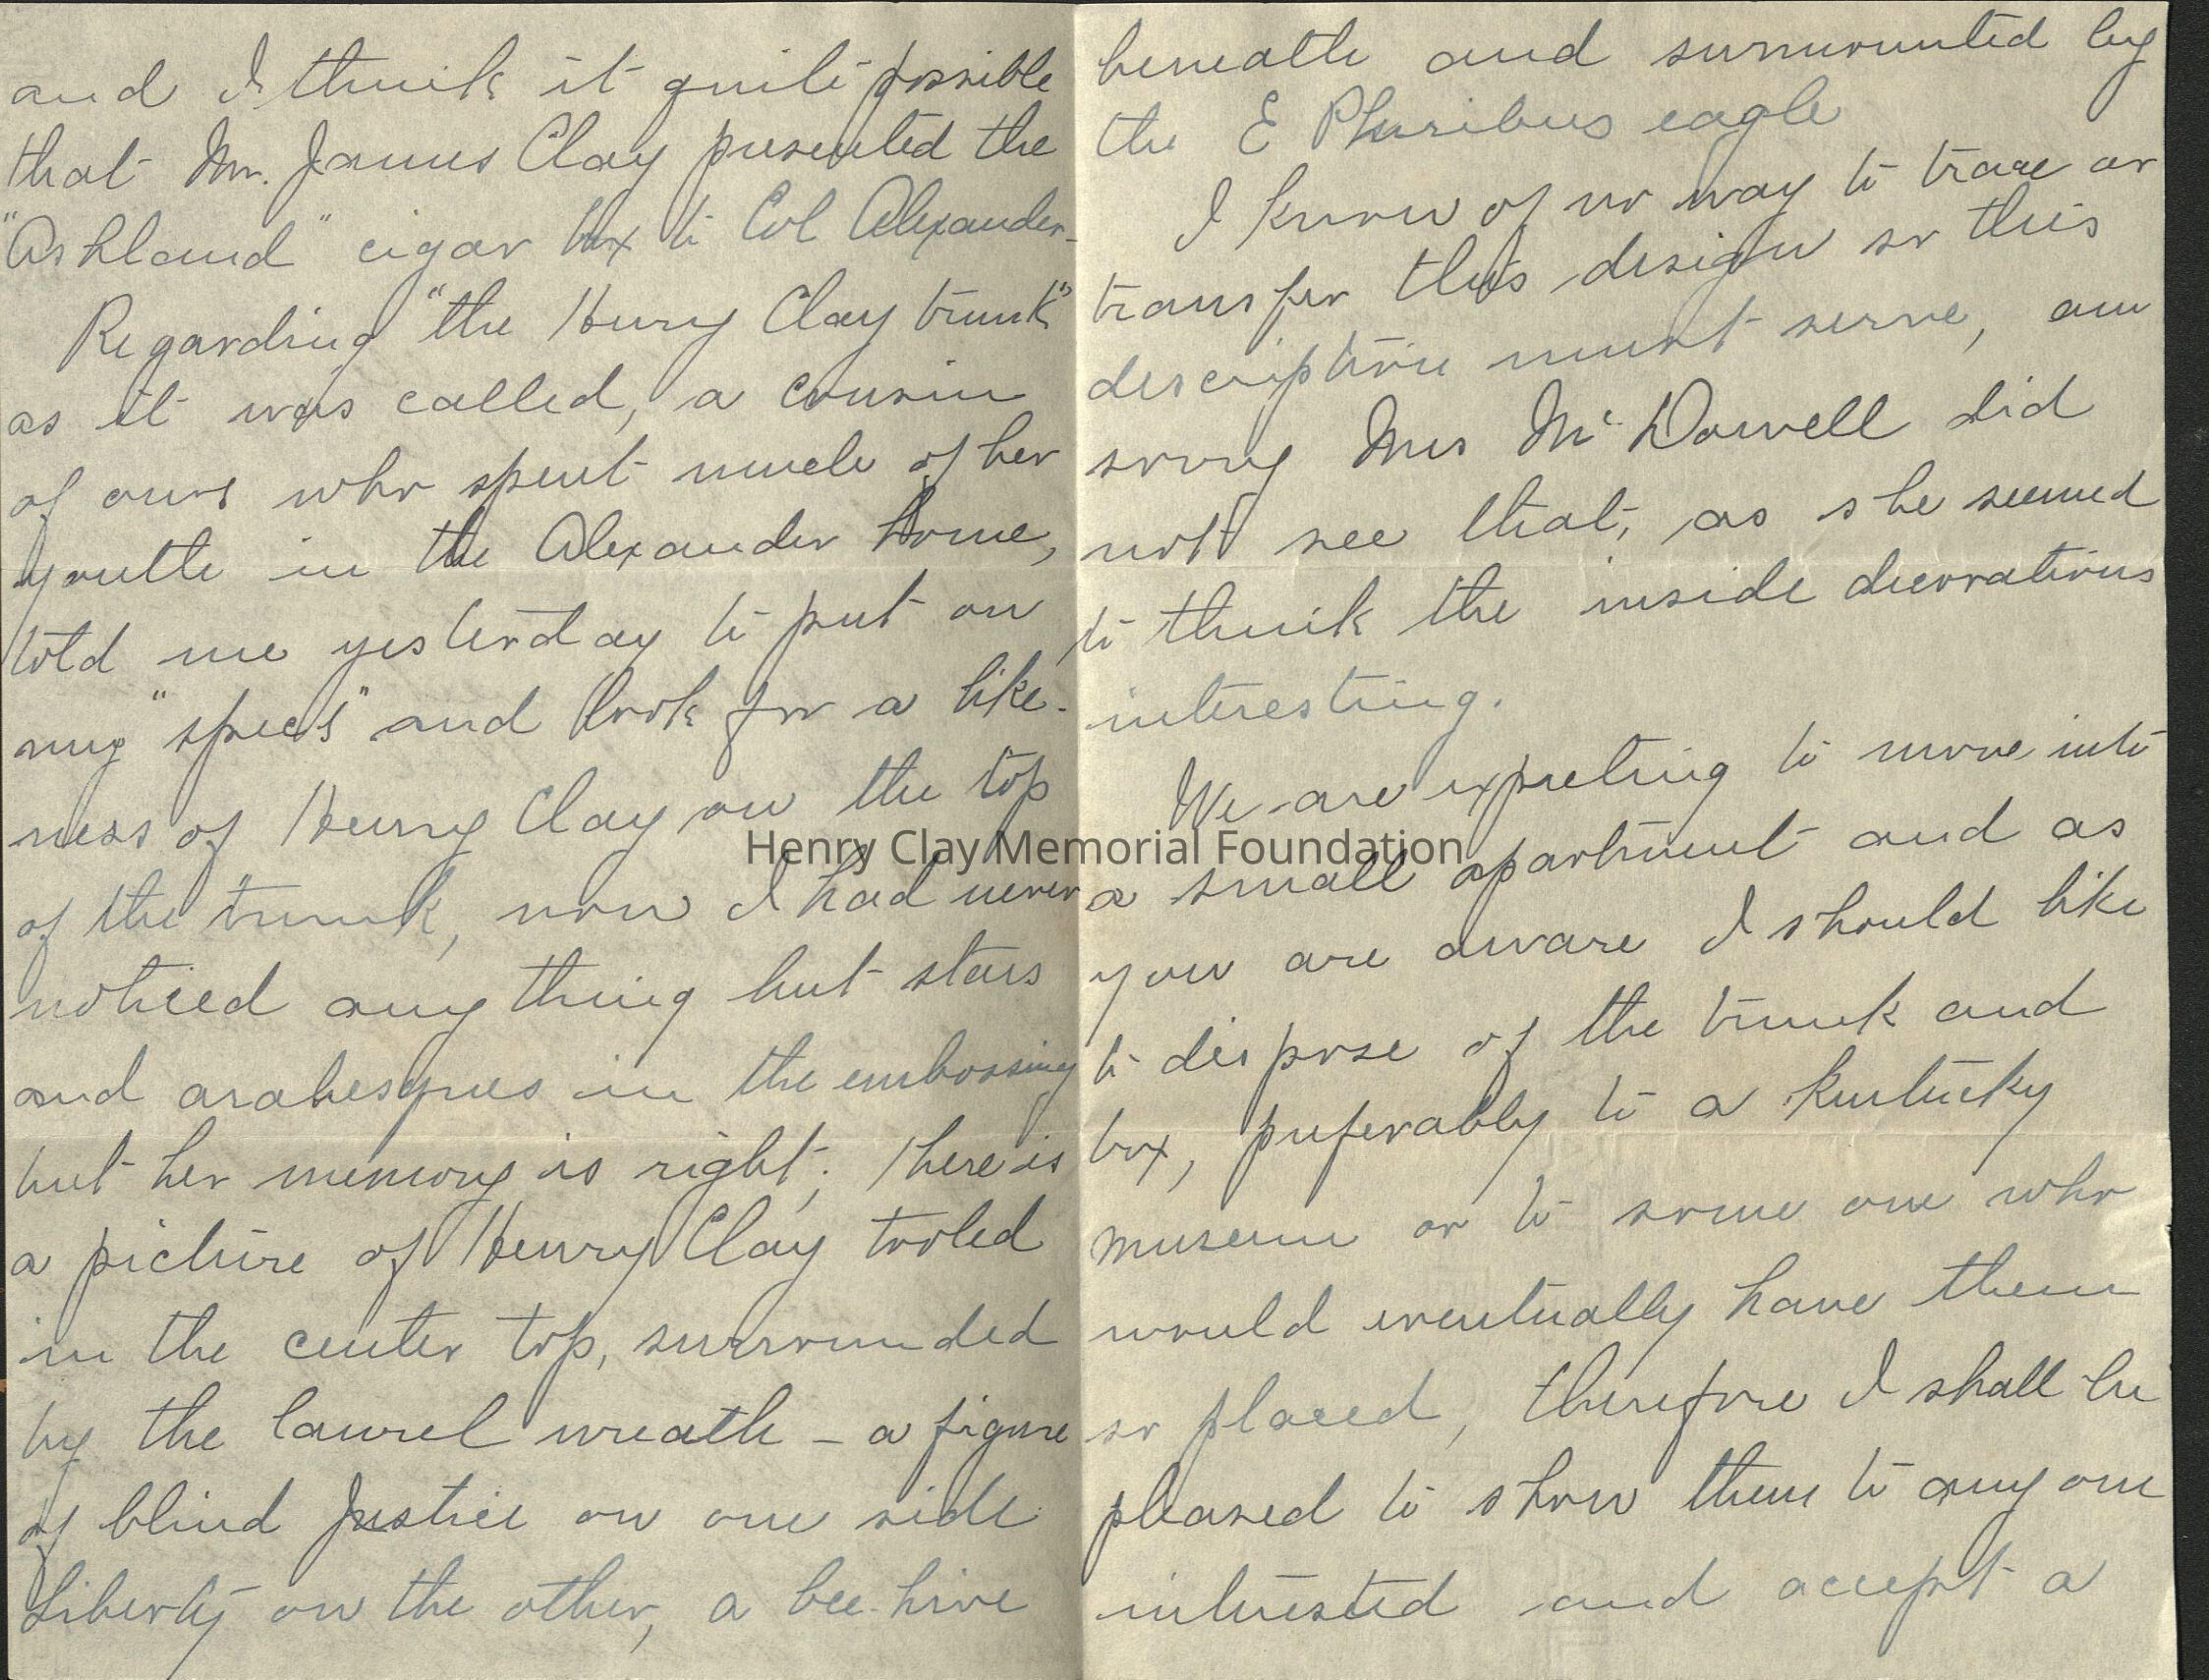 and I think it quite possible
that Mr. James Clay presented the
"Ashland" cigar box to Col Alexander.
Regarding "the Henry Clay trunk"
as it was called, a cousin
of ours who spent much of her
youth in the Alexander home,
told me yesterday to put on
my "specs" and look for a like-
ness of Henry Clay on the top
of the trunk, now I had never
noticed any thing but stars
and arabesques in the embossing
but her memory is right; There is
a picture of Henry Clay tooled
in the center top, surrounded
by the laurel wreath - a figure
of blind Justice on one side
Liberty on the other, a bee-hive
beneath and surmounted by
the E Pluribus eagle
I know of no way to trace or
transfer this design so this
description must serve, am
sorry Mrs McDowell did
not see that, as she seemed
to think the inside decorations
interesting.
We are expecting to move into
a small apartment and as
you are aware I should like
to dispose of the trunk and
box, preferably to a Kentucky
museum or to some one who
would eventually have them
so placed, therefore I shall be
pleased to show them to any one
interested and accept a
Henry Clay Memorial Foundation